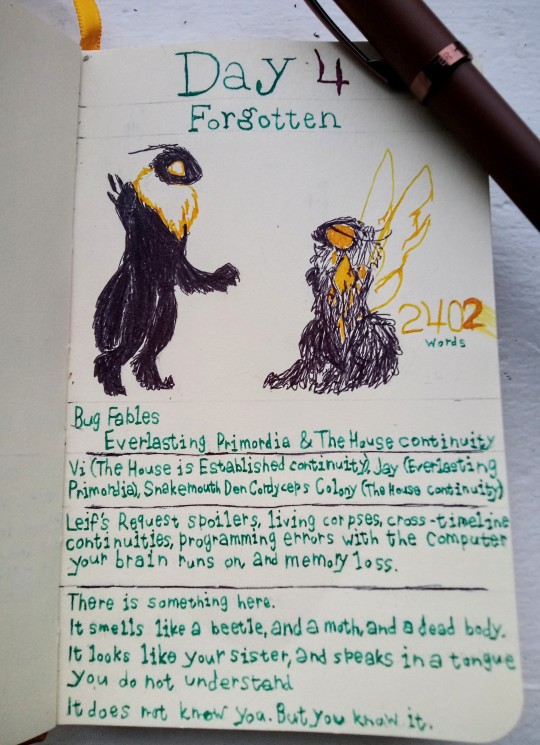 Day 4
Forgotten
2402
words
Bug Fables
Everlasting Primordia & The House continuity
Vi (The House is Established continuity), Jay (Everlasting
Primordia), Snakemouth Den Cordyceps Colony (The House continuity)
Leif's Request spoilers, living corpses, cross-timeline
continuities, programming errors with the computer
your brain runs on and memory loss.
There is something here.
It smells like a beetle, and a moth, and a dead body.
It looks like your sister, and speaks in a tongue
you do not understand
It does not know you. But you know it.